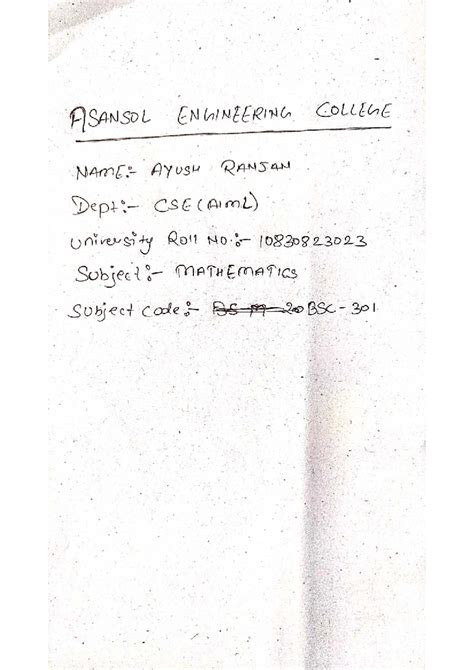 ASANSOL ENGINEERING COLLEGE
NAME:- AYUSH RANJAN
Dept:- CSE(AIML)
University Roll No.:- 10830823023
Subject:- MATHEMATICS
Subject Code:- BSC-301